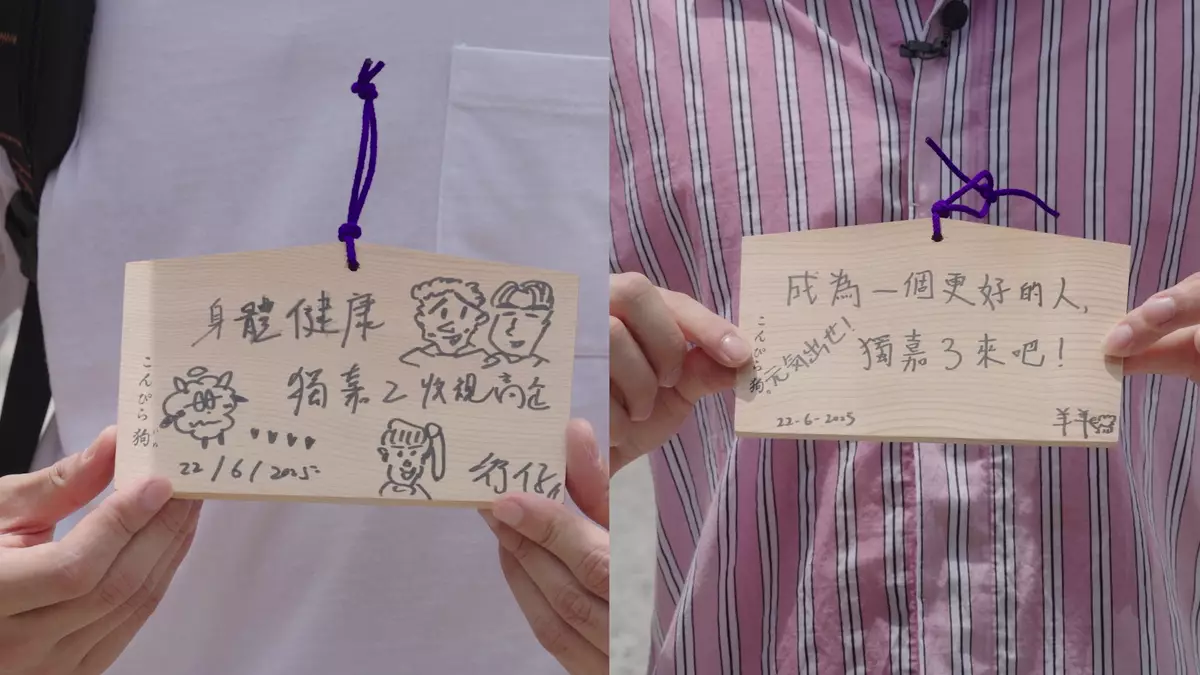 身體健康
獨嘉2收視高企
こんぴら狗
いぬ
22/6/2025
行仔
成為一個更好的人,
獨嘉3來吧!
元気出せ!
こんぴら狗
22-6-2025
羊羊